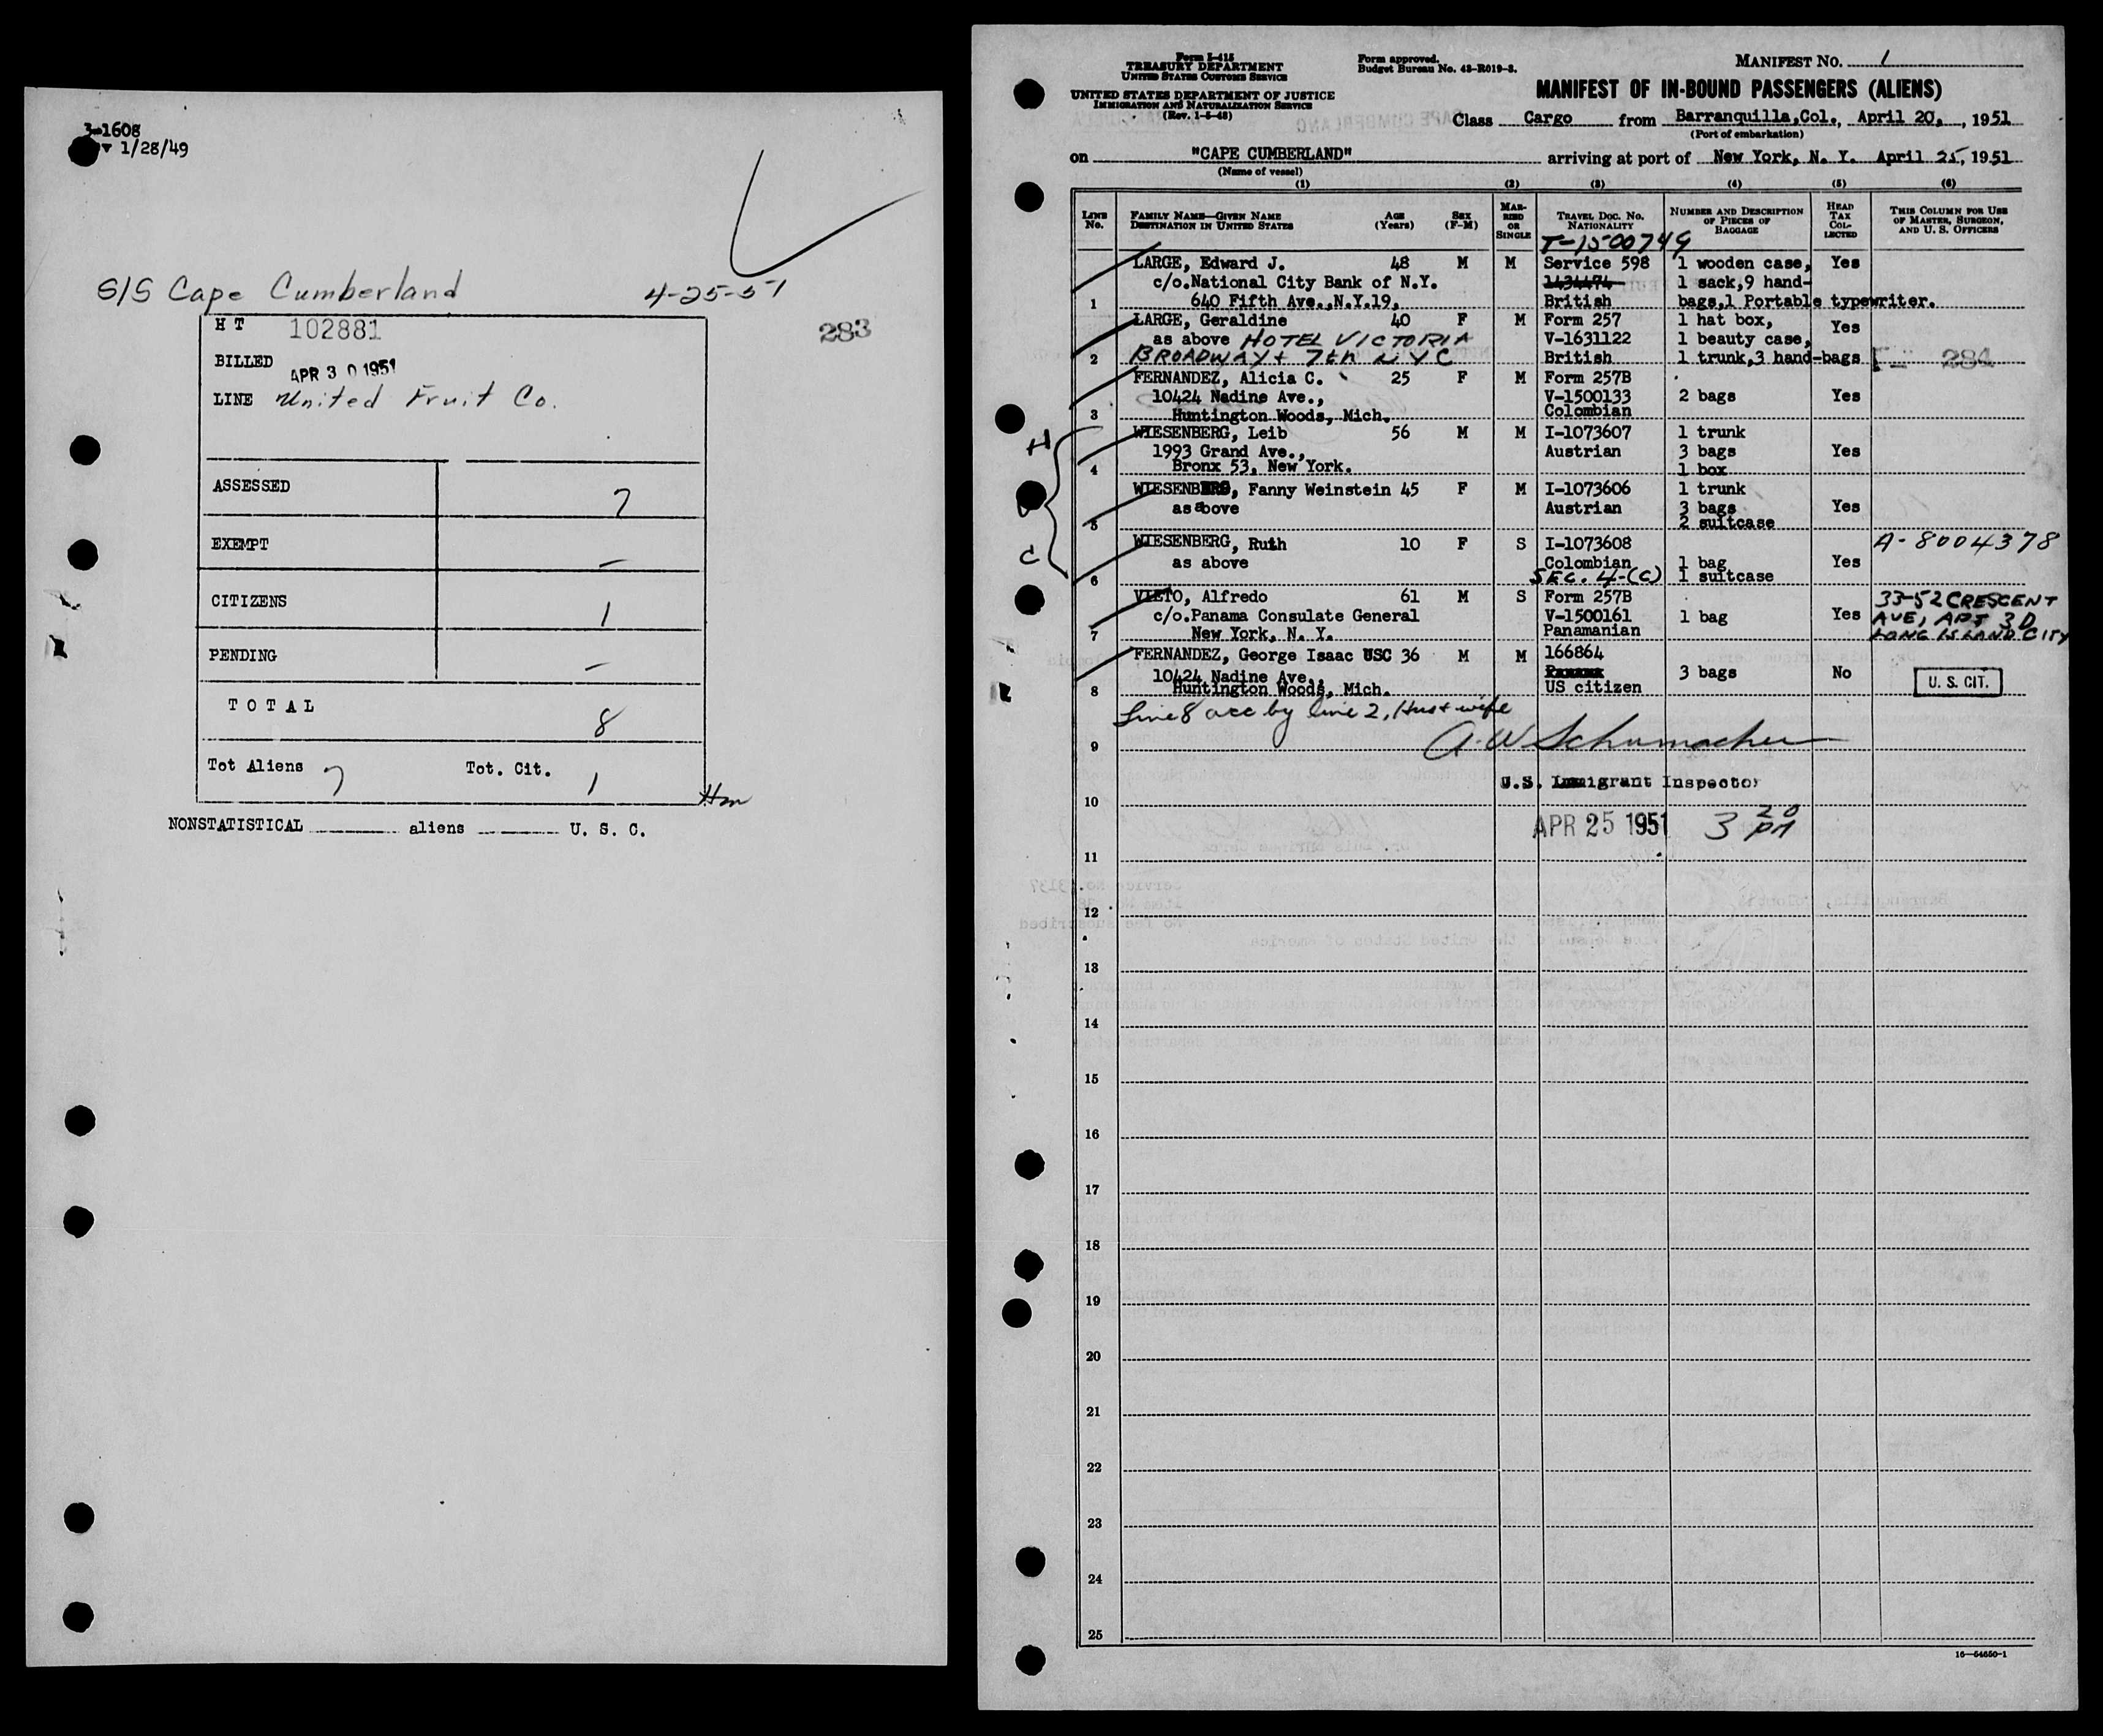 3-1608
1/28/49
S/S Cape Cumberland 4-25-51
283
HT 102881
BILLED APR 30 1951
LINE United Fruit Co.
ASSESSED 7
EXEMPT —
CITIZENS 1
PENDING —
TOTAL 8
Tot Aliens 7 Tot. Cit. 1
NONSTATISTICAL aliens U. S. C.
Form I-415
TREASURY DEPARTMENT
UNITED STATES CUSTOMS SERVICE
UNITED STATES DEPARTMENT OF JUSTICE
IMMIGRATION AND NATURALIZATION SERVICE
(Rev. 1-5-48)
Form approved.
Budget Bureau No. 43-R019-3.
MANIFEST NO. 1
MANIFEST OF IN-BOUND PASSENGERS (ALIENS)
Class Cargo from Barranquilla, Col., April 20, , 1951
(Port of embarkation)
on "CAPE CUMBERLAND" arriving at port of New York, N. Y. April 25, 1951
(Name of vessel)
(1) (2) (3) (4) (5) (6)
LINE No.
FAMILY NAME—GIVEN NAME
DESTINATION IN UNITED STATES
AGE (Years)
SEX (F-M)
MARRIED OR SINGLE
TRAVEL DOC. NO. NATIONALITY
NUMBER AND DESCRIPTION OF PIECES OF BAGGAGE
HEAD TAX COLLECTED
THIS COLUMN FOR USE OF MASTER, SURGEON, AND U. S. OFFICERS
T-1500749
LARGE, Edward J. 48 M M Service 598 1 wooden case, Yes
c/o.National City Bank of N.Y. 1434474 1 sack,9 hand-
1 640 Fifth Ave.,N.Y.19, British bags,1 Portable typewriter.
LARGE, Geraldine 40 F M Form 257 1 hat box, Yes
as above HOTEL VICTORIA V-1631122 1 beauty case,
2 BROADWAY + 7th N Y C British 1 trunk,3 hand-bags 284
FERNANDEZ, Alicia C. 25 F M Form 257B
10424 Nadine Ave., V-1500133 2 bags Yes
3 Huntington Woods, Mich. Colombian
WIESENBERG, Leib 56 M M I-1073607 1 trunk
1993 Grand Ave., Austrian 3 bags Yes
4 Bronx 53, New York. 1 box
WIESENBERG, Fanny Weinstein 45 F M I-1073606 1 trunk
as above Austrian 3 bags Yes
5 2 suitcase
WIESENBERG, Ruth 10 F S I-1073608 A-8004378
as above Colombian 1 bag Yes
6 SEC. 4-(C) 1 suitcase
VIETO, Alfredo 61 M S Form 257B 33-52 CRESCENT
c/o.Panama Consulate General V-1500161 1 bag Yes AVE, APT 3D
7 New York, N. Y. Panamanian LONG ISLAND CITY
FERNANDEZ, George Isaac USC 36 M M 166864
10424 Nadine Ave., 3 bags No U. S. CIT.
8 Huntington Woods, Mich. US citizen
Line 8 acc by line 2, Hus + wife
A. W Schumacher
9
U.S. Immigrant Inspector
10
APR 25 1951 3 20 PM
11
12
13
14
15
16
17
18
19
20
21
22
23
24
25
16—54650-1